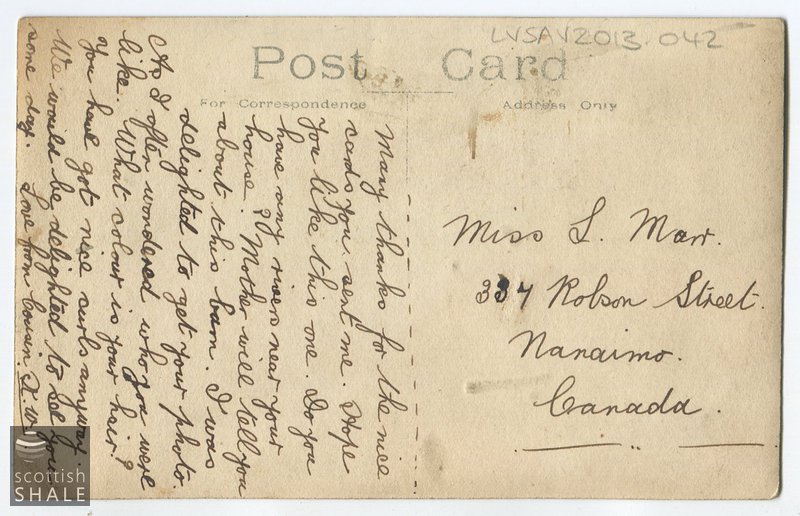 LVSAV2013.042
Post Card
For Correspondence
Address Only
Many thanks for the nice
cards you sent me. Hope
you like this one. Do you
have any rivers near your
house? Mother will tell you
about this barn. I was
delighted to get your photo.
As I often wondered who you were
like. What colour is your hair?
You have got nice curls anyway.
We would be delighted to see you
some day. Love from Cousin J. W.
Miss L. Marr.
337 Robson Street.
Nanaimo.
Canada.
scottish
SHALE